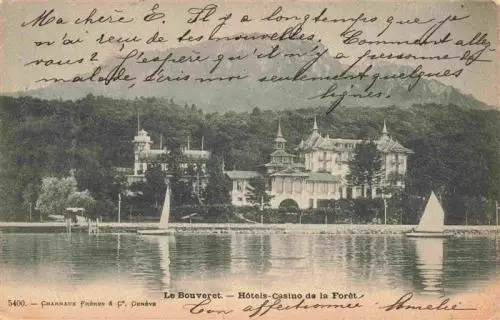 Ma chère E. Il y a longtemps que je
n'ai reçu de tes nouvelles. Comment allez
vous? J'espère qu'il n'y a personne de
malade écris moi seulement quelques
lignes.
Le Bouveret. — Hôtels-Casino de la Forêt
5400. — CHARNAUX FRÈRES & Cº, GENÈVE
Ton affectionnée Amélie